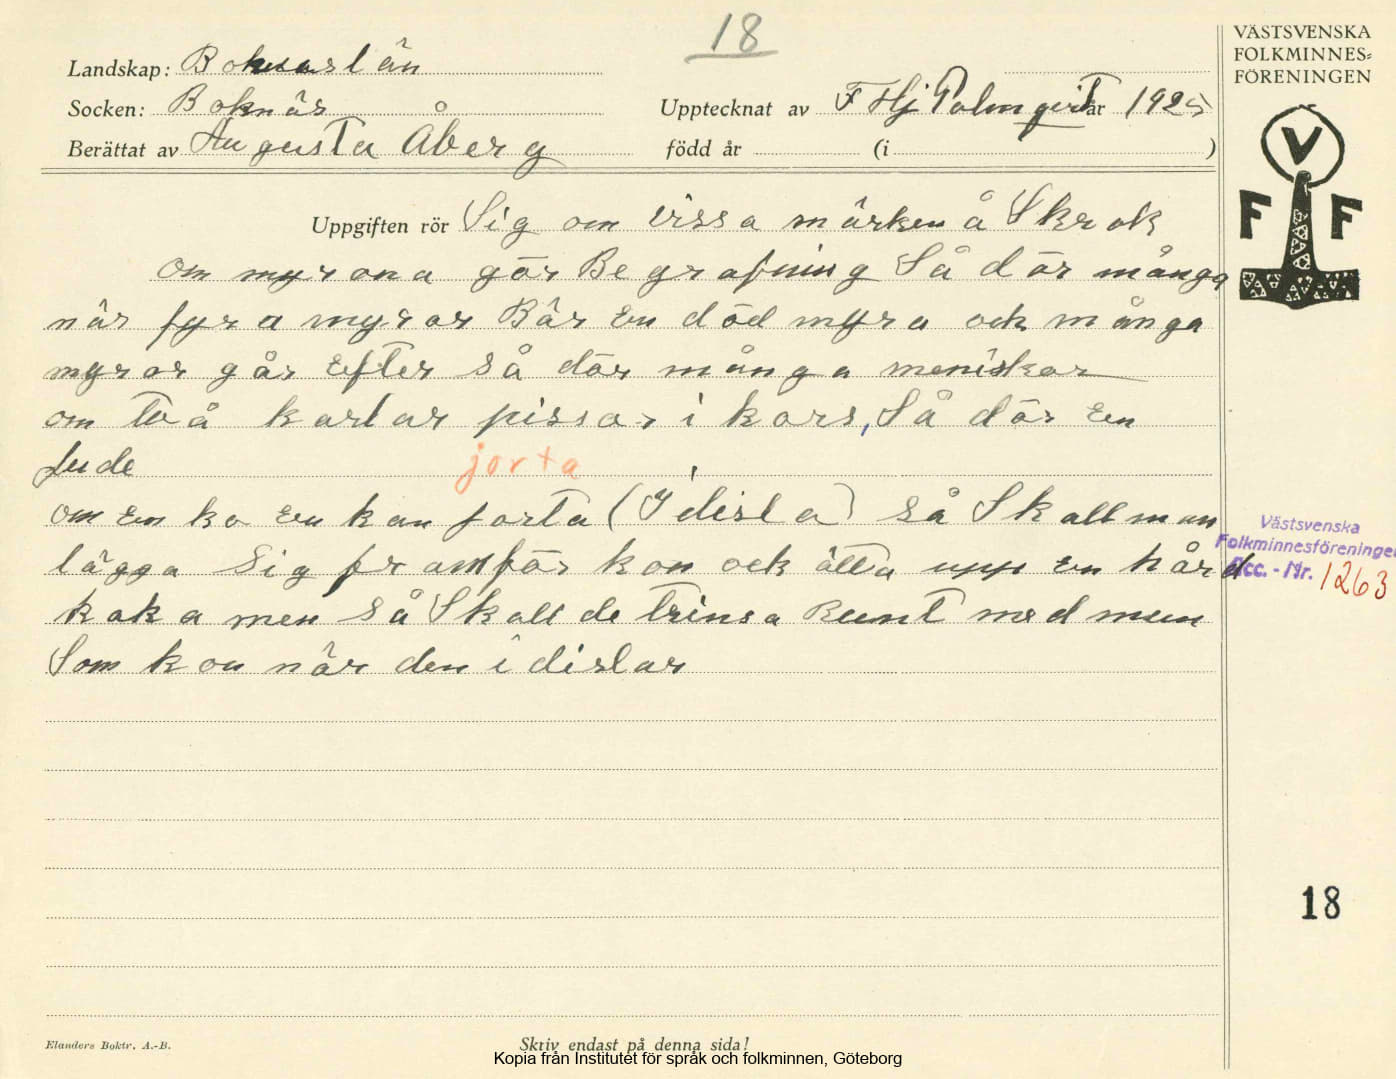 18
VÄSTSVENSKA
FOLKMINNES=
FÖRENINGEN
Landskap: Bohuslän
Socken: Boknäs
Upptecknat av F Hj Palmqvist år 1925
Berättat av Augusta Åberg
född år (i )
V
F F
Uppgiften rör Sig om vissa märken å Skrok
om myrona gör Begrafning Så dör många
när fyra myror Bär en död myra och många
myror går efter så dör många meniskor
om två karlar pissar i kors, Så dör en
Jude
jorta
om en ko en kan jorta (Idisla) så Skall man
lägga Sig framför kon och ätta upp en hård
kaka men så Skall de trinsa Runt med mun
Som kon när den idislar
Västsvenska
Folkminnesföreningen
Acc. - Nr. 1263
18
Elanders Boktr. A.-B.
Skriv endast på denna sida!
Kopia från Institutet för språk och folkminnen, Göteborg